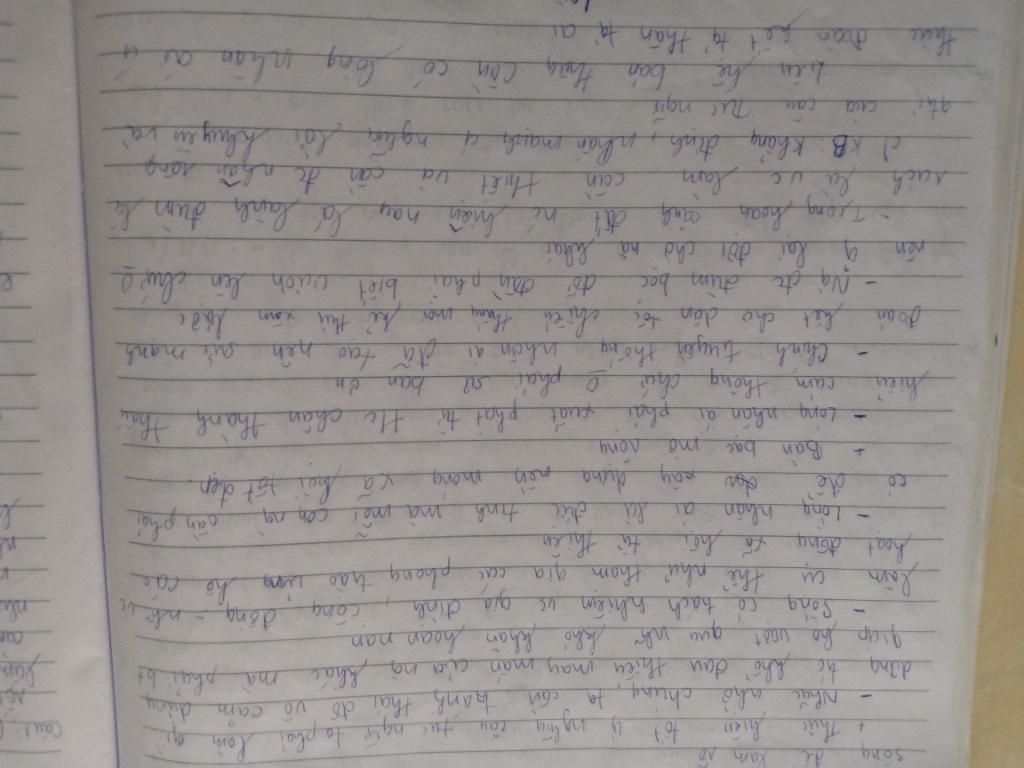 sống để làm rõ
+ Thực hiện tốt ý nghĩa câu tục ngữ ta phải làm gì
- Nhắc nhở chung, ta cần tránh thái độ vô cảm dửng
dửng tí khổ đau thiếu may mắn của ng khác mà phải bt
giúp họ vượt qua nh~ khó khăn hoạn nạn
- Sống có trách nhiệm vs gia đình, cộng đồng - nh~ vc
làm cụ thể như tham gia các phong trào ủng hộ các
hoạt động xã hội từ thiện
- Lòng nhân ái là đức tính mà mỗi con ng cần phải
có để xây dựng nền móng xã hội tốt đẹp.
+ Bàn bạc mở rộng
- Lòng nhân ái phải xuất phát từ sự chân thành thấu
hiểu cảm thông chứ o phải sự ban ơn
- Chính truyền thống nhân ái đã tạo nên sức mạnh
đoàn kết cho dân tộc chiến thắng mọi kẻ thù xâm lược
- Ng đc đùm bọc đỡ đần phải biết vươn lên chứ o
nên ỷ lại đợi chờ ng khác
- Trong hoàn cảnh đất nc hiện nay lá lành đùm lá
rách là vc làm cần thiết và cần đc nhân rộng
c) KB: Khẳng định, nhấn mạnh ý nghĩa, lời khuyên và
giá trị của câu tục ngữ
Liên hệ bản thân cần có lòng nhân ái ý
thức đoàn kết tự thân tự ái
Câu 1